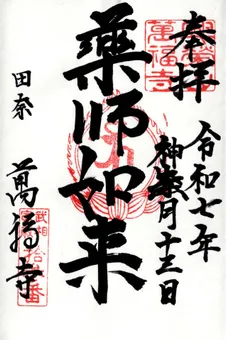 奉拝
令和七年
神無月十三日
薬師如来
田奈
萬福寺
萬福寺